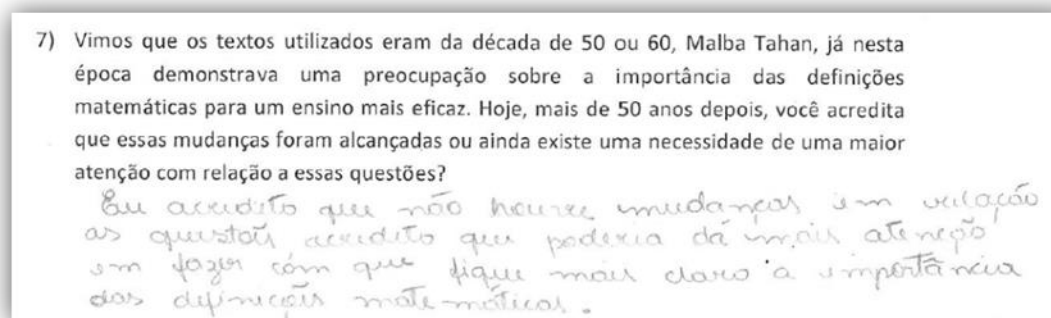 7) Vimos que os textos utilizados eram da década de 50 ou 60, Malba Tahan, já nesta
época demonstrava uma preocupação sobre a importância das definições
matemáticas para um ensino mais eficaz. Hoje, mais de 50 anos depois, você acredita
que essas mudanças foram alcançadas ou ainda existe uma necessidade de uma maior
atenção com relação a essas questões?
Eu acredito que não houve mudanças em relação
as questois acredito que poderia dá mais atenção
em fazer com que fique mais claro a importância
das definiçois matemáticas.